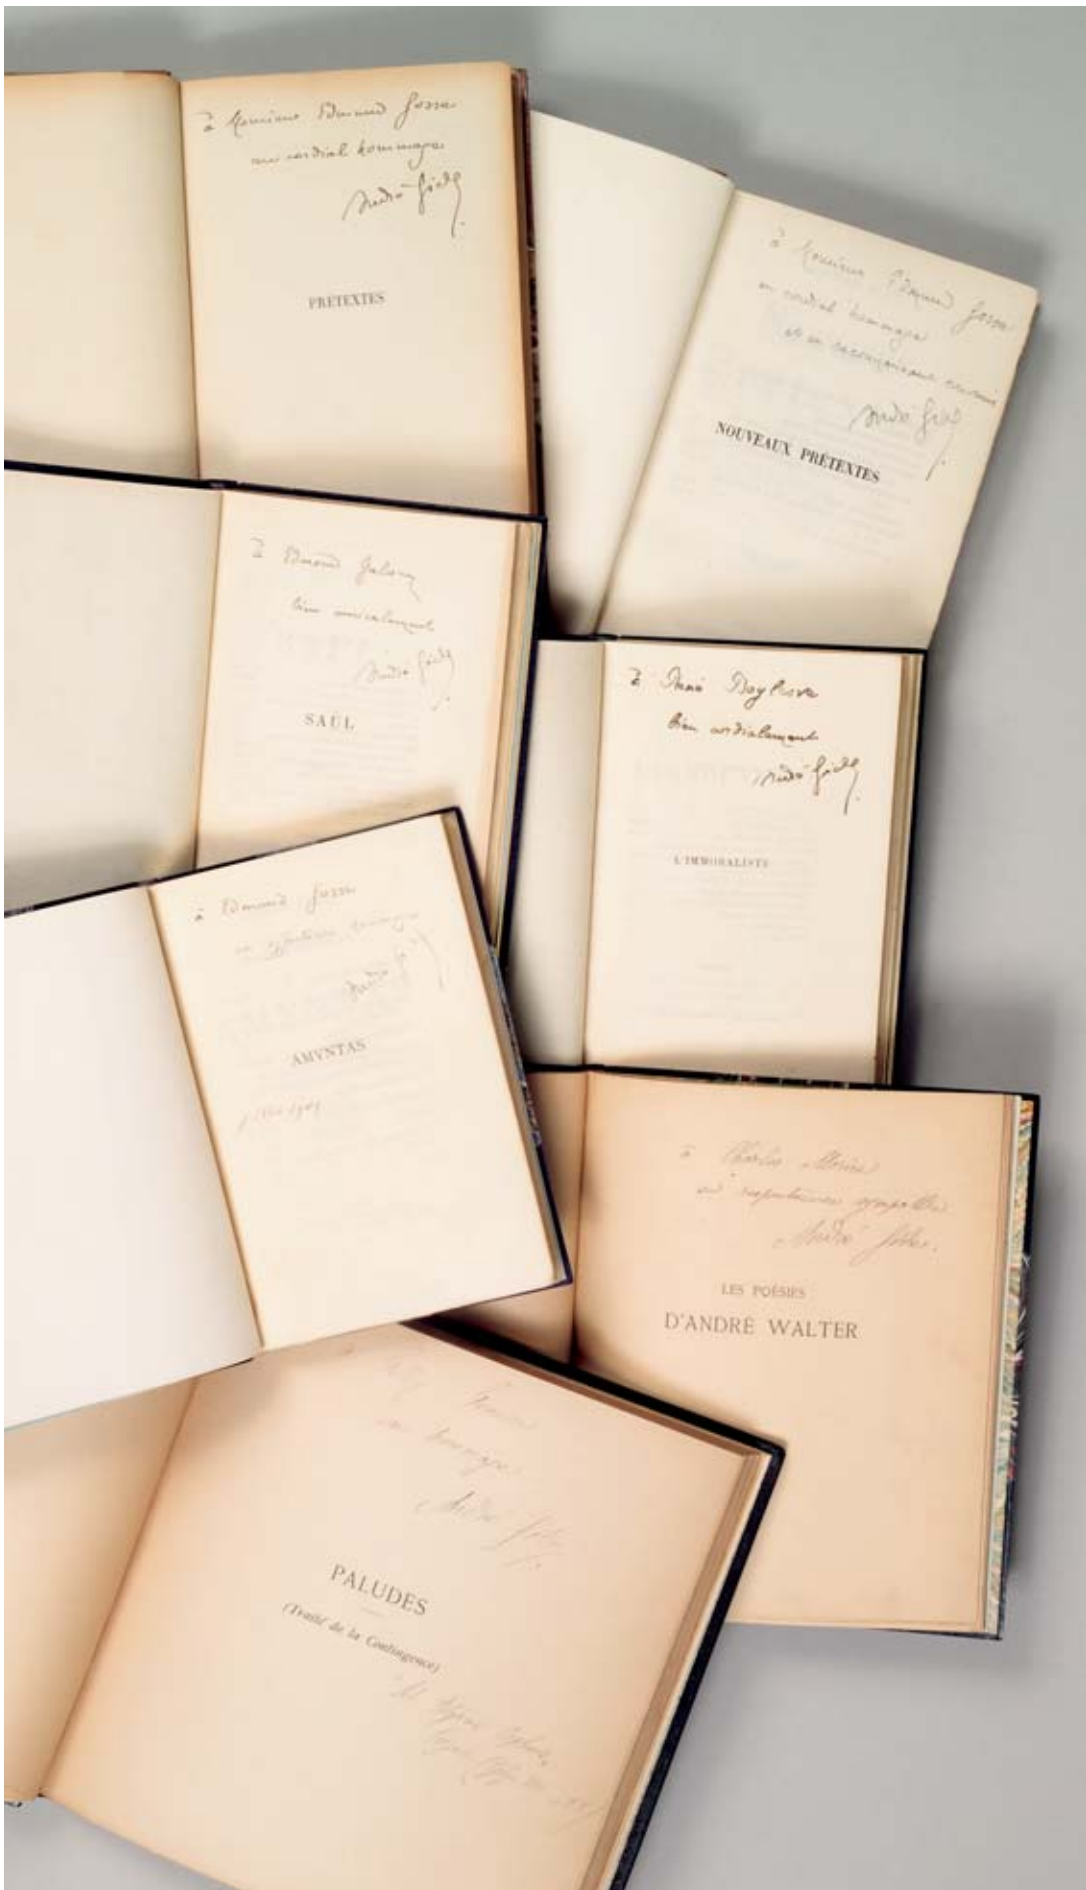 à Monsieur Edmund Gosse
en cordial hommage
André Gide
PRÉTEXTES
à Monsieur Edmund Gosse
en cordial hommage
et en reconnaissant souvenir
André Gide
NOUVEAUX PRÉTEXTES
à Edmond Jaloux
bien amicalement
André Gide
SAÜL
à René Boylesve
bien cordialement
André Gide
L'IMMORALISTE
à Edmund Gosse
en hommage
André Gide
AMYNTAS
à Charles Morice
en respectueuse sympathie
André Gide.
LES POÉSIES
D'ANDRÉ WALTER
en hommage
André Gide
PALUDES
(Traité de la Contingence)